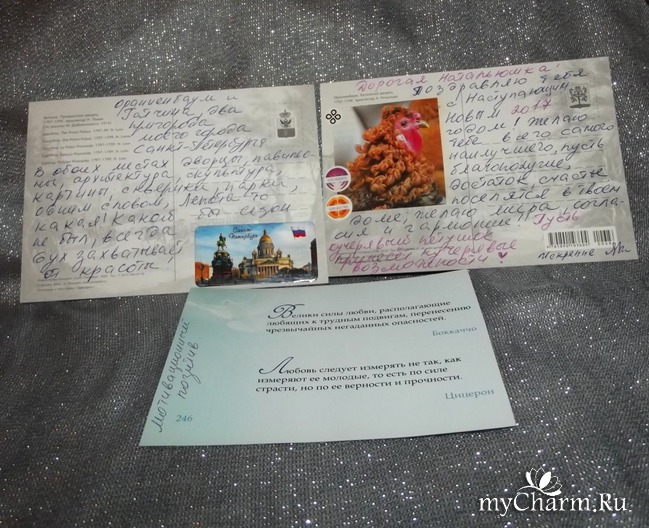 Ораниенбаум и
Гатчина, два
пригорода
моего города
Санкт-Петербурга
В обоих местах дворцы, павильо-
ны, архитектура, скульптура,
картины, скверики, парки,
общим словом, лепота-то
какая! Какой бы сезон
не был, всегда
дух захватывает
от красоты
Санкт
Петербург
Дорогая Натальюшка!
Поздравляю тебя
с Наступающим
Новым 2017
годом! Желаю
тебе всего самого
наилучшего, пусть
благополучие,
достаток, счастье
поселятся в твоем
доме, желаю мира, согла-
сия и гармонии! Пусть
кучерявый петушок
принесет кучерявые
возможности!
Искренне
Мотивационный
позитив
Велики силы любви, располагающие
любящих к трудным подвигам, перенесению
чрезвычайных негаданных опасностей.
Боккаччо
Любовь следует измерять не так, как
измеряют ее молодые, то есть по силе
страсти, но по ее верности и прочности.
Цицерон
246
myCharm.Ru